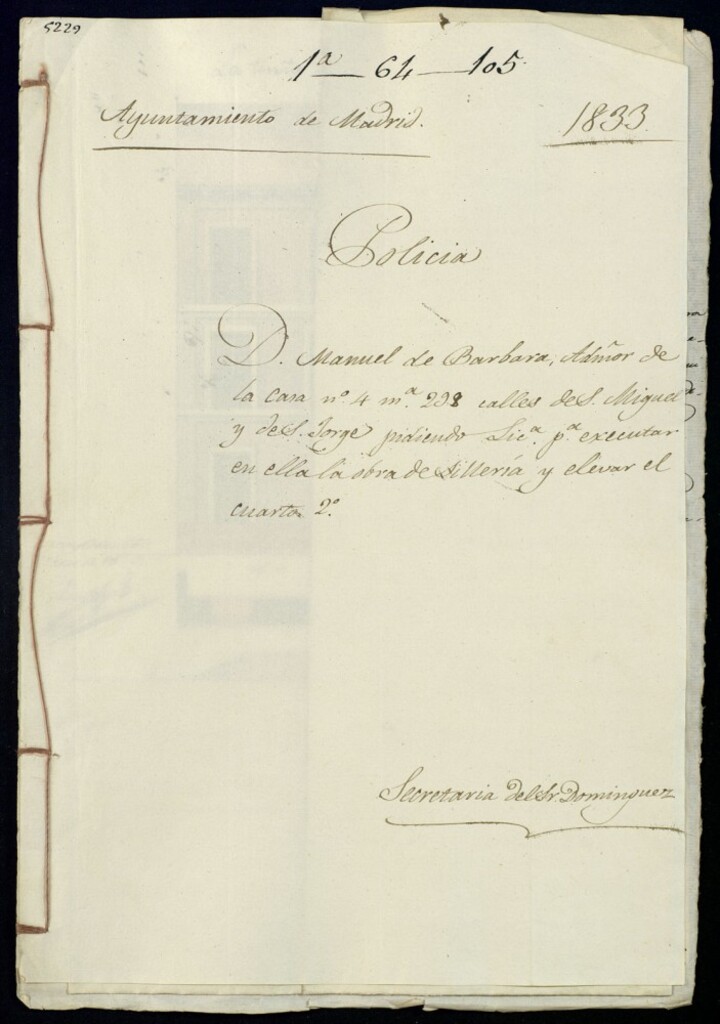 5229
1ª — 64 — 105.
Ayuntamiento de Madrid.
1833
Policia
D. Manuel de Barbara, Admõr de
la casa nº 4 mª 298 calles de S. Miguel
y de S. Jorge pidiendo Licª pª executar
en ella la obra de sillería y elevar el
cuarto 2º
Secretaria del Sr. Dominguez